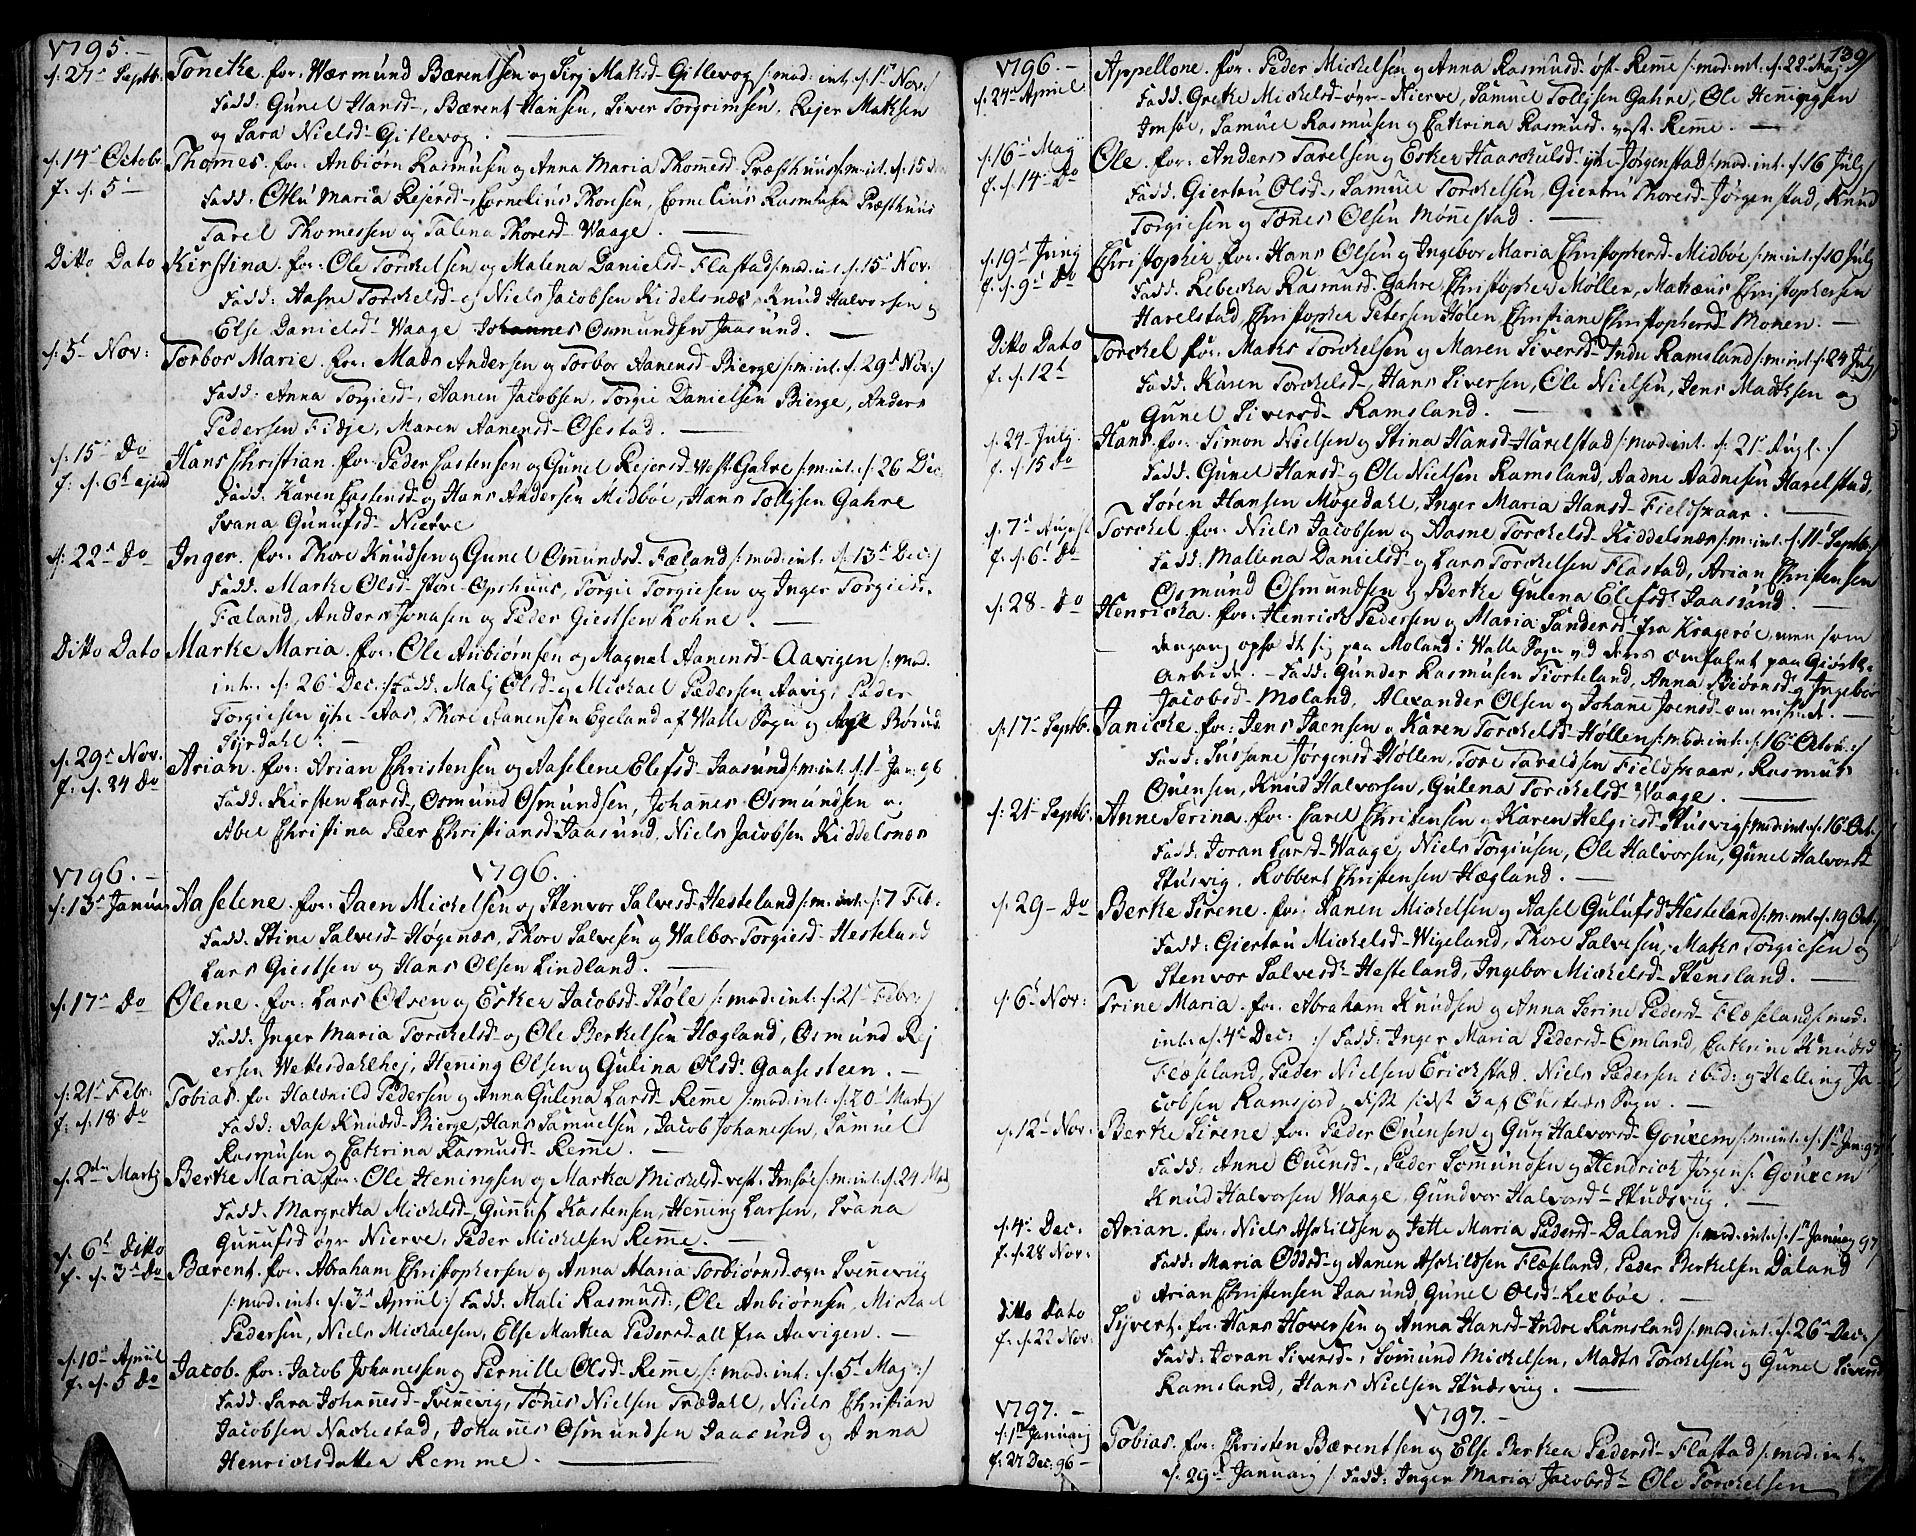 1795.
d: 27d Septb: Toneke. for: Wærmund Bærentsen og Siri Matsd- Gitlevog /: mod: int: d: 1st Nov:/
Fadd: Gunel Hansd-, Bærent Hansen, Siver Torgrimsen, Rejer Matsen
og Sara Nielsd- Gitlevog.
d: 14d Octobr Thomes. for: Anbiørn Rasmusen og Anna Maria Thomesd- Præsthuus /:m: int: d: 15
f. d: 5t Fadd: Maria Rejersd-, Cornelius Thoresen, Cornelius Rasmusen Præsthuus
Tarel Thomessen og Talena Thoresd- Waage.
Ditto Dato Kirstina. for: Ole Torckelsen og Malena Danielsd- Flastad /: mod: int: d: 15d Nov:
Fadd: Aasne Torckelsd- og Niels Jacobsen Kidelsnæs, Knud Halvorsen og
Else Danielsd- Waage Johannes Osmundsen Jaasund.
d: 5t Nov: Torbor Marie. for: Mads Andersen og Torbor Aanensd- Bierge /: m: int: d: 29d Nov:/
Fadd: Anna Torgiesd-, Aanen Jacobsen, Torgie Danielsen Bierge, Anders
Pedersen Fidje, Maren Aanensd- Øsestad.
d: 15d Do Hans Christian. for: Peder Castensen og Gunel Rejersd- vest Gahre /: m: int: d: 26 Dec:
f: d: 6t Fadd: Karen Castensd- og Hans Andersen Midbøe, Hans Tollisen Gahre
Svana Gunufsd- Nierve
d: 22d Do Inger. for: Thore Knudsen og Gunel Omundsd- Fæland /: mod: int: d: 13d Dec:/
Fadd: Marke Olsd- store Opshuus, Torgie Torgiesen og Inger Torgiesd-
Fæland, Anders Jonasen og Peder Giertsen Løhne.
Ditto Dato Marke Maria. for: Ole Anbiørnsen og Magnel Aanensd- Aavigen /: mod:
int: d: 26d Dec:/ Fadd: Malj Olsd- og Mickael Pedersen Aavig, Peder
Torgiesen ytre Aas, Thore Aanensen Egeland af Walle Sogn og
Syrdahl.
d: 29d Nov. Arian. for: Arian Christensen og Aaselene Elefsd- Jaasund /: m: int: d: 1t Jan: 96
f: d: 24 Do Fadd: Kirsten Larsd-, Osmund Osmundsen, Johannes Osmundsen og
Abel Christina Peer Christiansd- Jaasund, Niels Jacobsen Kiddelsnæs
1796. 1796.
d: 13d Januar Aaselene. for: Jaen Mickelsen og Stenvor Salvesd- Hesteland /: m: int: d: 7 Feb:
Fadd: Stine Salvesd- Høgenæs, Thore Salvesen og Walbor Torgiesd- Hesteland
Lars Giertsen og Hans Olsen Lindland.
d: 17d Do Olene. for: Lars Olsen og Esker Jacobsd- Støle /: mod: int: d: 21d Febr:/
Fadd: Inger Maria Torckelsd- og Ole Berkelsen Hægland, Osmund Rej
ersen Wettersdalhej, Henning Olsen og Gulina Olsd- Gaasesteen.
d: 21d Febr: Tobias. for: Haldvild Pedersen og Anna Gulena Larsd- Remme /: mod: int: d: 20d Martj
f: d: 18 Do Fadd: Aase Knudsd- Bierge, Hans Samuelsen, Jacob Johanesen, Samuel
Rasmusen og Catrina Rasmusd- Remme.
d: 2den Martj Berke Maria for: Ole Heningsen og Marka Mickelsd- vest Imsøe /: m: int: d: 24 Martj
Fadd: Margreta Mickelsd-, Gunnuf Kastensen, Hening Larsen, Svana
Gunufsd- øyre Nierve, Peder Mickelsen Remme.
d: 6t Ditto Bærent. for: Abraham Christophersen og Anna Maria Torbiørnsd- øyre Svennevig
f: d: 3d Do /: mod: int: d: 3d Apriil:/ Fadd: Mali Rasmusd-, Ole Anbiørnsen, Mickael
Pedersen, Niels Mickaelsen, Else Markea Pedersd- all fra Aavigen.
d: 10d Apriil Jacob. for: Jacob Johanesen og Pernille Olsd- Remme /: mod: int: d: 5t Maj:/
f: d: 5 Do Fadd: Sara Johannesd- Svennevig, Tønes Nielsen Trædahl, Niels Christian
Jacobsen Nackestad, Johannes Osmundsen Jaasund og Anna
Henricksdatter Remme.
139
1796.
d: 24 Apriil Appellone. for: Peder Mickelsen og Anna Rasmusd- øst- Remme /: mod: int: d: 22d Maj
Fadd: Greke Mickelsd- øyre Nierve, Samuel Tollisen Gahre, Ole Henningsen
Imsøe, Samuel Rasmusen og Catrina Rasmusd- vest- Remme.
d: 16d Maj Ole. for: Anders Tarelsen og Esker Haasckulsd- ytre Jørgenstad /: mod: int: d: 16 Julj
f. d: 14d Do Fadd: Giertru Olsd-, Samuel Torckelsen, Giertru Thoresd- Jørgenstad, Knud
Torgiesen og Tønes Olsen Mønnestad.
d: 19d Junij Christopher for: Hans Olsen og Ingebor Maria Christophersd- Midbøe /: m: int: d: 10 Julj
f: d: 9d Do Fadd: Rebecka Rasmusd- Gahre Christopher Møller, Matæus Christophersen
Harelstad, Christopher Petersen Holen, Christiane Christophersd- Monen.
Ditto Dato Torckel for: Mats Torckelsen og Maren Siversd- Indre Ramsland /: m: int: d: 24 Julj
f. d: 12t Fadd: Karen Torckelsd-, Hans Siversen, Ole Nielsen, Jens Madtsen og
Gunel Siversd- Ramsland.
d: 24 Julj. Hans for: Simon Nielsen og Stina Hansd- Harelstad /: mod: int: d: 21d Augl:/
f. d: 15 Do Fadd: Gunel Hansd- og Ole Nielsen Ramsland, Aadne Aadnesen Harelstad,
Søren Hansen Møgedahl, Inger Maria Hansd- Fieldsnaar.
d: 7d August Torckel for: Niels Jacobsen og Aasne Torckelsd- Kiddelsnæs /: m: int: d: 11t Septb:/
f: d: 6t Do Fadd: Malena Danielsd- og Lars Torckelsen Flastad, Arian Christensen
Osmund Osmundsen og Berke Gulena Elefsd- Jaasund.
d: 28- Do Henricka. for: Henrick Pedersen og Maria Sandersd- fra Kragerøe, men som
dengang opholdt sig paa Moland i Walle Sogn ved deres omfahrt paa Giørtl:
Arbide. - Fadd: Gunder Rasmusen Tiorteland, Anna Biørensd- og Ingebor
Jacobsd- Moland, Alexander Olsen og Johane Joensd-
d: 17d Septb. Janicke for: Jens Jaensen og Karen Torckelsd- Høllen /: mod: int: d: 16d Octobr:/
Fadd: Susane Jørgensd- Høllen, Tore Taraldsen Fieldsnaar, Rasmus
Ouensen, Knud Halvorsen, Gulena Torckelsd- Waage.
d: 21d Septb. Anne Serina. for: Carel Christensen og Karen Helgiesd- Stusvig /: mod: int: d: 16 Oct:/
Fadd: Joran Larsd- Waage, Niels Torgiusen, Ole Halvorsen, Gunel Halvorsd
Stusvig. Robbert Christensen Hægland.
d: 29- Do Berke Sirene. for: Aanen Mickelsen og Aasel Gulufsd- Hesteland /: m: int: d: 19 Oct:/
Fadd: Giertru Mickelsd- Wigeland, Thore Salvesen, Mats Torgiesen og
Stenvor Salvesd- Hesteland, Ingebor Mickelsd- Stensland.
d: 6t Nov: Trine Maria. for: Abraham Knudsen og Anna Serine Pedersd- Flæseland /: mod:
int: d: 4d Dec: :/ Fadd: Inger Maria Pedersd- Omland, Catrine Knudsd
Flæseland, Peder Nielsen Erickstad. Niels Pedersen ibid: og Helling Ja
cobsen Ramsjord, disse sidst 3 af Ouestads Sogn.
d: 12d Nov: Berke Sirene for: Peder Ouensen og Guro Halvorsd- Gouxem /: m: int: d: 1st Jan: 97
Fadd: Anne Ouensd-, Peder Sommundsen og Hendrick Jørgens: Gouxem
Knud Halvorsen Waage, Gundvor Halvorsd- Studsvig.
d: 4d Dec: Arian. for: Niels Aschildsen og Jette Maria Pedersd- Daland /: mod: int: d: 1st Januarj 97
f. d: 28 Nov: Fadd: Maria Oddsd- og Aanen Aschildsen Flæseland, Peder Berkelsen Daland
Arian Christensen Jaasund Gunel Olsd- Lexbøe.
Ditto Dato Syvert. for: Hans Hoversen og Anna Hansd- Indre Ramsland /: mod: int: d: 26d Dec:/
f. d: 22 Nov: Fadd: Joran Siversd-, Sommund Mickelsen, Madts Torckelsen og Gunel Siversd
Ramsland, Hans Nielsen Studsvig.
1797. 1797.
d: 1st Januarj Tobias. for: Christen Bærentsen og Else Berkea Pedersd- Flastad /: mod: int:
f. 27 Dec: 96 d: 29d Januarij / Fadd: Inger Maria Jacobsd- Ole Torckelsen